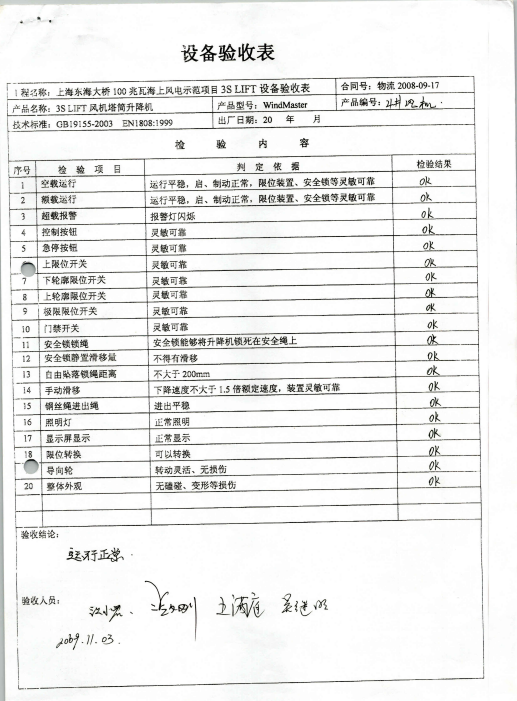 设备验收表
工程名称：上海东海大桥 100 兆瓦海上风电示范项目 3S LIFT 设备验收表 合同号：物流 2008-09-17
产品名称：3S LIFT 风机塔筒升降机 产品型号：WindMaster 产品编号：
技术标准：GB19155-2003 EN1808:1999 出厂日期：20 年 月
检 验 内 容
序号 检 验 项 目 判 定 依 据 检验结果
1 空载运行 运行平稳，启、制动正常，限位装置、安全锁等灵敏可靠 OK
2 额载运行 运行平稳，启、制动正常，限位装置、安全锁等灵敏可靠 OK
3 超载报警 报警灯闪烁 OK
4 控制按钮 灵敏可靠 OK
5 急停按钮 灵敏可靠 OK
上限位开关 灵敏可靠 OK
7 下轮廓限位开关 灵敏可靠 OK
8 上轮廓限位开关 灵敏可靠 OK
9 极限限位开关 灵敏可靠 OK
10 门禁开关 灵敏可靠 OK
11 安全锁锁绳 安全锁能够将升降机锁死在安全绳上 OK
12 安全锁静置滑移量 不得有滑移 OK
13 自由坠落锁绳距离 不大于 200mm OK
14 手动滑移 下降速度不大于 1.5 倍额定速度，装置灵敏可靠 OK
15 钢丝绳进出绳 进出平稳 OK
16 照明灯 正常照明 OK
17 显示屏显示 正常显示 OK
18 限位转换 可以转换 OK
导向轮 转动灵活、无损伤 OK
20 整体外观 无磕碰、变形等损伤 OK
验收结论：
运行正常.
验收人员：
2009.11.03.